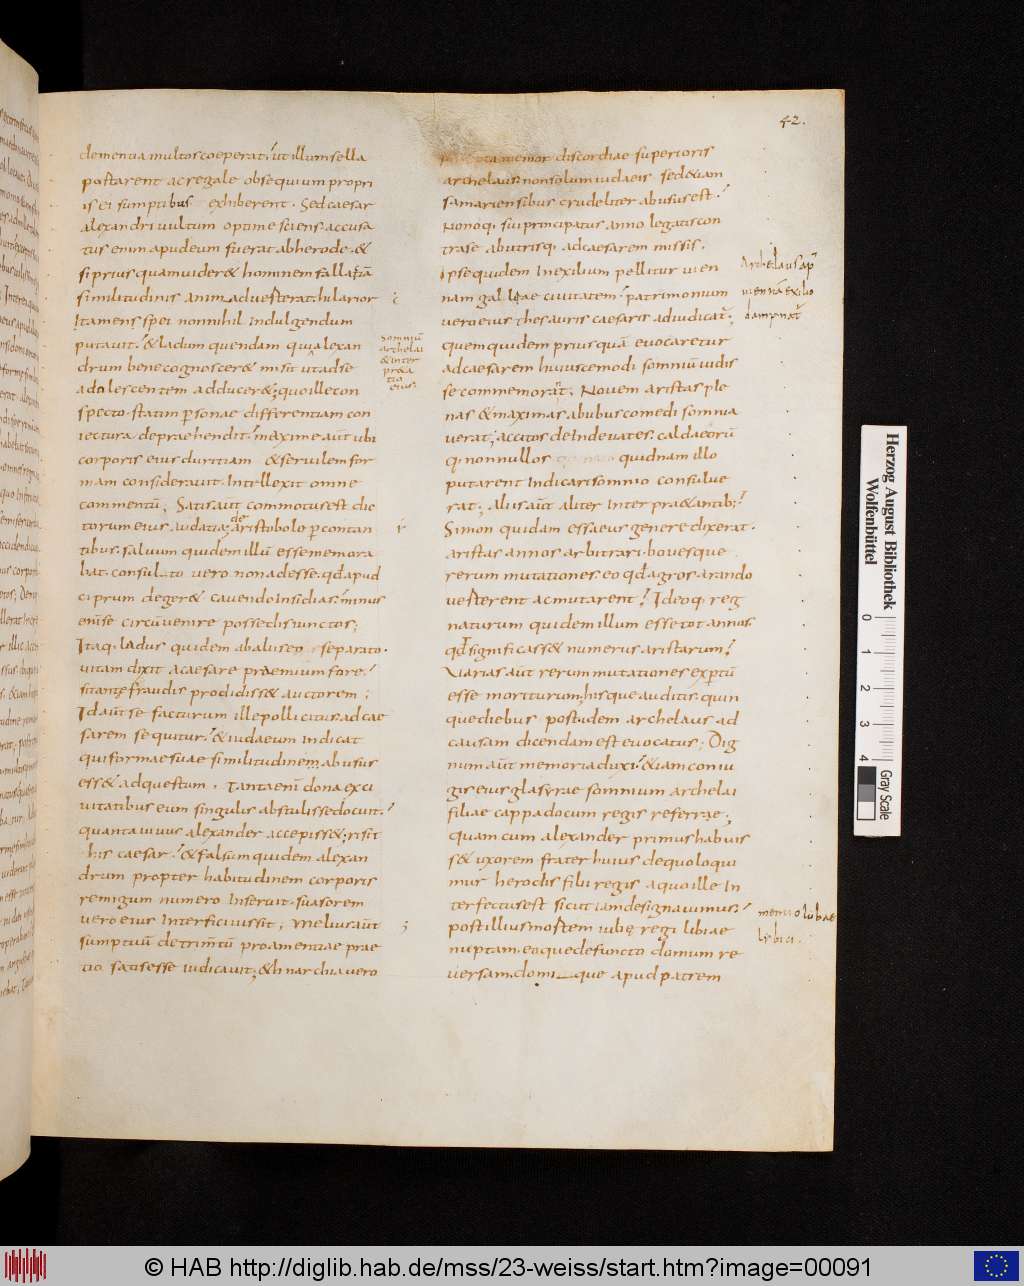 42.
clementia multos coeperat; ut illum sella
portarent ac regale obsequium propri
is ei sumptibus exhiberent. Sed caesar
alexandri uultum optime sciens accusa
tus enim apud eum fuerat ab herode. &
si prius quam uider& hominem fallatiā
similitudinis animaduerterat hilarior
Itamens spei nonnihil Indulgendum
putauit. & ladum quendam qui alexan
drum bene cognoscer& misit ut ad se
adolescentem adducer&; quo ille con
specto statim p̱sonae differentiam con
iectura depraehendit. maxime aūt ubi
corporis eius duritiam & seruilem for
mam considerauit. Intellexit omne
commentū. Satis aūt commotus est dic
torum eius audatia; de aristobolo p̱contan
tibus. saluum quidem illū esse memora
bat. consulto uero non adesse. qđ apud
ciprum deger& cauendo Insidias. minus
enī se circūuenire posse disiunctos;
Itaq. ladus quidem ab aliis eo separato.
uitam dixit a caesare praemium fore.
si tantę fraudis prodidiss& auctorem;
Id aūt se facturum ille pollicitus. ad cae
sarem sequitur. & iudaeum Indicat
qui formae suae similitudinem abusus
ess& ad questum. Tanta enī dona ex ci
uitatibus eum singulis abstulisse docuit.
quanta uiuus alexander accepiss&; risit
his caesar. & falsum quidem alexan
drum propter habitudinem corporis
remigum numero Inseruit. suasorem
uero eius Interfici iussit; melius aūt
sumptuū detrim̄tū pro amentiae prae
tio satis esse iudicauit; &hnarchia uero
somniū
archelai
& inter
pr&a
tio
eius.
memor discordiae superioris
archelaus. non solum iudaeis sed & iam
samariensibus crudeliter abusus est.
Nonoq. sui principatus anno legatis con
tra se ab utrisq. ad caesarem missis.
Ipse quidem In exilium pellitur uien
nam galleae ciuitatem. patrimonium
uero eius thesauris caesaris adiudicat̄.;
quem quidem prius quā euocaretur
ad caesarem huiuscemodi somniū uidis
se commemorat̄. Nouem aristas ple
nas & maximas a bubus comedi somnia
uerat; accitos deinde uates. caldaeorū
q. non nullos quidnam illo
putarent Indicari somnio consulue
rat; Aliis aūt aliter Interpraetantib;
Simon quidam essaeus genere dixerat.
aristas annos arbitrari. boues que
rerum mutationes. eo qđ agros arando
uerterent ac mutarent. Ideoq. reg
naturum quidem illum esse tot annos
qđ significass& numerus aristarum.
Uarias aūt rerum mutationes exp̱tū
esse moriturum; hisque auditis. quin
que diebus post. idem archelaus ad
causam dicendam est euocatus; Dig
num aūt memoria duxi. & iam coniu
gis eius glafyrae somnium archelai
filiae cappadocum regis referrae;
quam cum alexander primus habuis
s& uxorem frater huius de quo loqui
mur herodis filii regis a quo ille In
terfectus est sicut iam designauimus.
post illius mortem iubę regi libiae
nuptam. eoque defuncto domum re
uersam. domi que apud patrem
Archelaus ap̄
uiennā exilio
dampnat̄
lybici.
Herzog August Bibliothek
Wolfenbüttel
0 1 2 3 4
Gray Scale
© HAB http://diglib.hab.de/mss/23-weiss/start.htm?image=00091